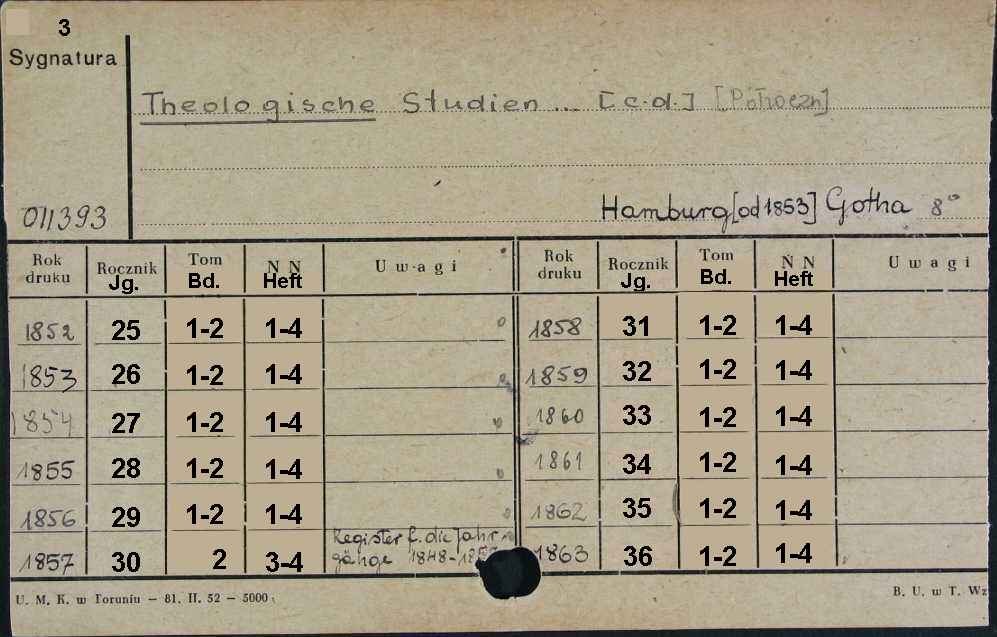 3
Sygnatura
Theologische Studien ... [c.d.] [Półroczn]
011393
Hamburg [od 1853] Gotha 8°
Rok druku Rocznik Jg. Tom Bd. N N Heft U w a g i Rok druku Rocznik Jg. Tom Bd. N N Heft U w a g i
1852 25 1-2 1-4 1858 31 1-2 1-4
1853 26 1-2 1-4 1859 32 1-2 1-4
1854 27 1-2 1-4 1860 33 1-2 1-4
1855 28 1-2 1-4 1861 34 1-2 1-4
1856 29 1-2 1-4 1862 35 1-2 1-4
1857 30 2 3-4 Register f. die Jahrgänge 1848- 1863 36 1-2 1-4
U. M. K. w Toruniu — 81. II. 52 — 5000
B. U. w T. Wz